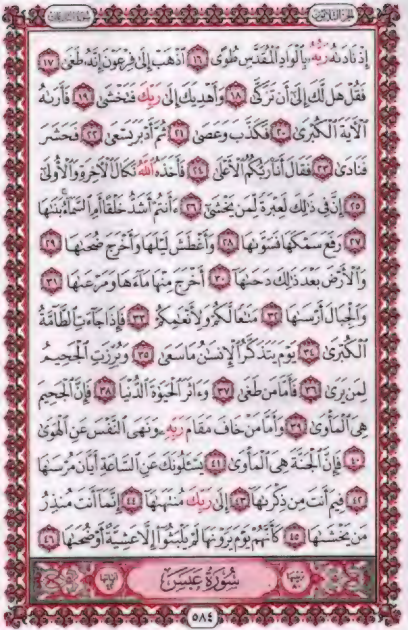 الجزء الثلاثون سورة النازعات
إِذْ نَادَىٰهُ رَبُّهُۥ بِٱلْوَادِ ٱلْمُقَدَّسِ طُوًى ١٦ ٱذْهَبْ إِلَىٰ فِرْعَوْنَ إِنَّهُۥ طَغَىٰ ١٧
فَقُلْ هَل لَّكَ إِلَىٰٓ أَن تَزَكَّىٰ ١٨ وَأَهْدِيَكَ إِلَىٰ رَبِّكَ فَتَخْشَىٰ ١٩ فَأَرَىٰهُ
ٱلْـَٔايَةَ ٱلْكُبْرَىٰ ٢٠ فَكَذَّبَ وَعَصَىٰ ٢١ ثُمَّ أَدْبَرَ يَسْعَىٰ ٢٢ فَحَشَرَ
فَنَادَىٰ ٢٣ فَقَالَ أَنَا۠ رَبُّكُمُ ٱلْأَعْلَىٰ ٢٤ فَأَخَذَهُ ٱللَّهُ نَكَالَ ٱلْـَٔاخِرَةِ وَٱلْأُولَىٰٓ
٢٥ إِنَّ فِى ذَٰلِكَ لَعِبْرَةً لِّمَن يَخْشَىٰٓ ٢٦ ءَأَنتُمْ أَشَدُّ خَلْقًا أَمِ ٱلسَّمَآءُ ۚ بَنَىٰهَا
٢٧ رَفَعَ سَمْكَهَا فَسَوَّىٰهَا ٢٨ وَأَغْطَشَ لَيْلَهَا وَأَخْرَجَ ضُحَىٰهَا ٢٩
وَٱلْأَرْضَ بَعْدَ ذَٰلِكَ دَحَىٰهَآ ٣٠ أَخْرَجَ مِنْهَا مَآءَهَا وَمَرْعَىٰهَا ٣١
وَٱلْجِبَالَ أَرْسَىٰهَا ٣٢ مَتَٰعًا لَّكُمْ وَلِأَنْعَٰمِكُمْ ٣٣ فَإِذَا جَآءَتِ ٱلطَّآمَّةُ
ٱلْكُبْرَىٰ ٣٤ يَوْمَ يَتَذَكَّرُ ٱلْإِنسَٰنُ مَا سَعَىٰ ٣٥ وَبُرِّزَتِ ٱلْجَحِيمُ
لِمَن يَرَىٰ ٣٦ فَأَمَّا مَن طَغَىٰ ٣٧ وَءَاثَرَ ٱلْحَيَوٰةَ ٱلدُّنْيَا ٣٨ فَإِنَّ ٱلْجَحِيمَ
هِىَ ٱلْمَأْوَىٰ ٣٩ وَأَمَّا مَنْ خَافَ مَقَامَ رَبِّهِۦ وَنَهَى ٱلنَّفْسَ عَنِ ٱلْهَوَىٰ
٤٠ فَإِنَّ ٱلْجَنَّةَ هِىَ ٱلْمَأْوَىٰ ٤١ يَسْـَٔلُونَكَ عَنِ ٱلسَّاعَةِ أَيَّانَ مُرْسَىٰهَا
٤٢ فِيمَ أَنتَ مِن ذِكْرَىٰهَآ ٤٣ إِلَىٰ رَبِّكَ مُنتَهَىٰهَآ ٤٤ إِنَّمَآ أَنتَ مُنذِرُ
مَن يَخْشَىٰهَا ٤٥ كَأَنَّهُمْ يَوْمَ يَرَوْنَهَا لَمْ يَلْبَثُوٓا۟ إِلَّا عَشِيَّةً أَوْ ضُحَىٰهَا ٤٦
سُورَةُ عَبَسَ
٥٨٤